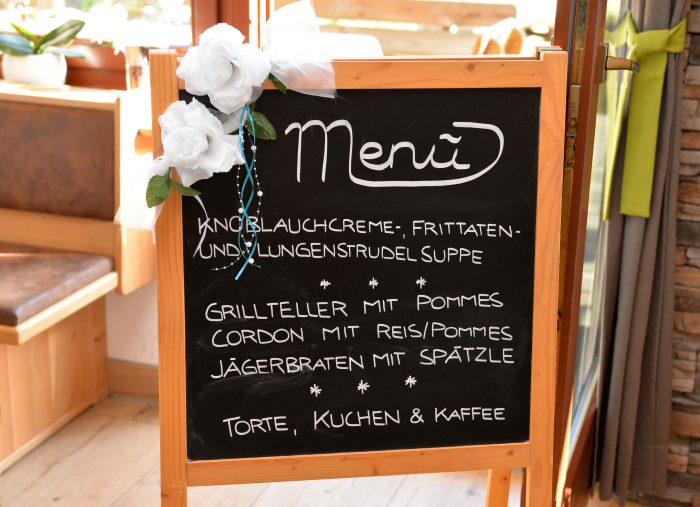 Menü
KNOBLAUCHCREME-, FRITTATEN-
UND LUNGENSTRUDEL SUPPE
* * *
GRILLTELLER MIT POMMES
CORDON MIT REIS/POMMES
JÄGERBRATEN MIT SPÄTZLE
* * *
TORTE, KUCHEN & KAFFEE